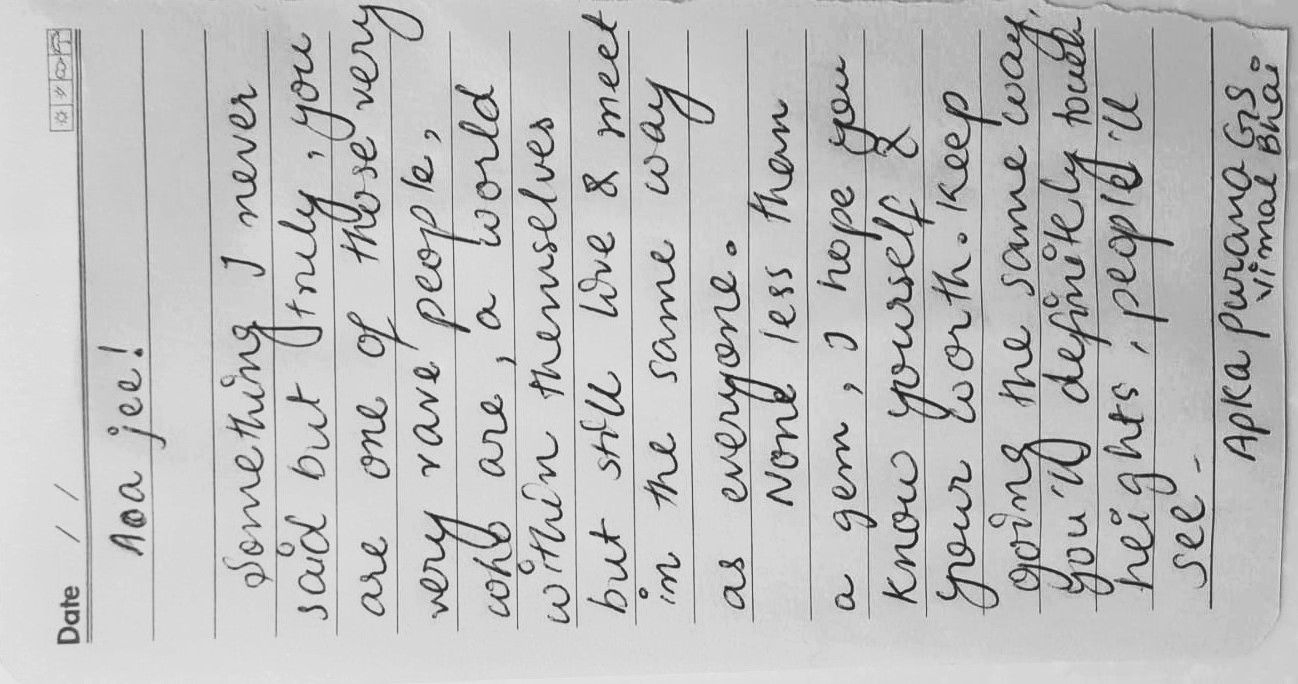 Date / /
Aoa jee!
Something I never
said but truly, you
are one of those very
very rare people,
who are, a world
within themselves
but still live & meet
in the same way
as everyone.
None less than
a gem, I hope you
know yourself &
your worth. Keep
going the same way,
you'll definitely touch
heights, people'll
see -
Apka Purana GS
Vimal Bhai